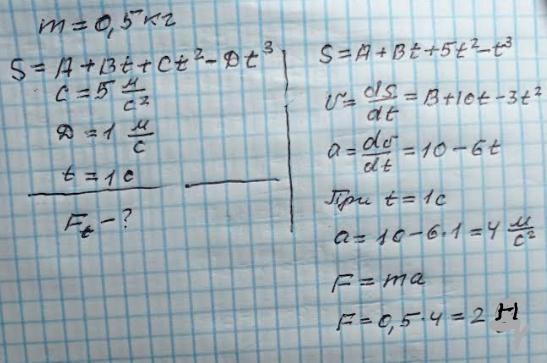 m = 0,5 кг
S = A + Bt + Ct² - Dt³
C = 5 м/с²
D = 1 м/с
t = 1 с
Fₜ - ?
S = A + Bt + 5t² - t³
v = dS/dt = B + 10t - 3t²
a = dv/dt = 10 - 6t
При t = 1с
a = 10 - 6·1 = 4 м/с²
F = ma
F = 0,5·4 = 2 Н